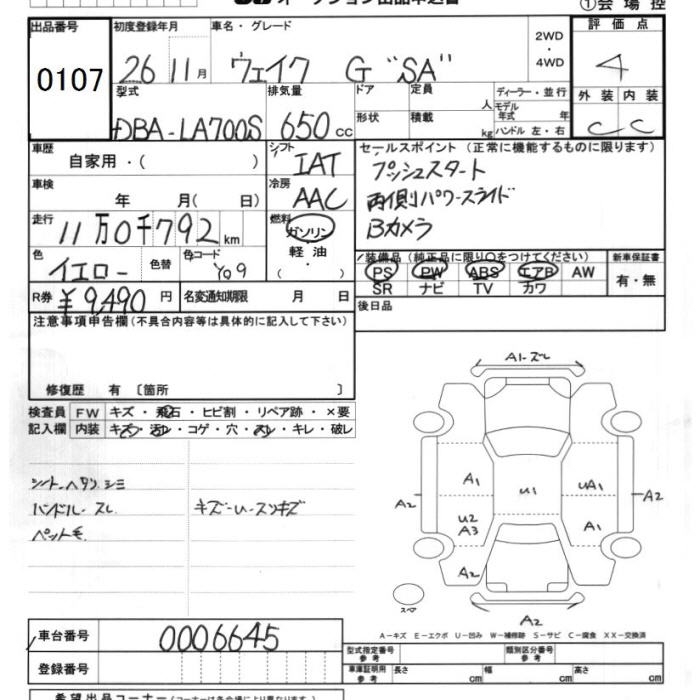 オークション出品申込書
①会場控
出品番号 初度登録年月 車名・グレード 2WD・4WD 評価点
0107 26 11月 ウェイク G "SA" 4
型式 排気量 ドア 定員 人 ディーラー・並行 外装 内装
DBA-LA700S 650cc 形状 積載 kg モデル年式 年 ハンドル 左・右 C C
車歴 自家用・( ) シフト IAT セールスポイント (正常に機能するものに限ります)
車検 年 月( 日) 冷房 AAC プッシュスタート
両側パワースライド
走行 11万0千792km 燃料 ガソリン Bカメラ
軽油
・( )
色 イエロー 色替 色コード Y09 装備品(純正品に限り○をつけてください) 新車保証書
PS PW ABS エアB AW 有・無
SR ナビ TV カワ
R券 ¥9,490円 名変通知期限 月 日 後日品
注意事項申告欄(不具合内容等は具体的に記入して下さい)
修復歴 有 〔箇所 〕
検査員 FW キズ・飛石・ヒビ割・リペア跡・×要
記入欄 内装 キズ・汚れ・コゲ・穴・スレ・キレ・破レ
シートヘタリ、シミ
ハンドルスレ キズ-U-スリキズ
ペット毛
A1-ズレ
A1 U1 UA1
A2 A2
U2 A3 A1
A2
スペア
A2
A-キズ E-エクボ U-凹み W-補修跡 S-サビ C-腐食 XX-交換済
車台番号 0006645
型式指定番号 参考 類別区分番号 参考
登録番号 車庫証明用 参考 長さ cm 幅 cm 高さ cm
希望出品コーナー(コーナーは各会場により異なります)